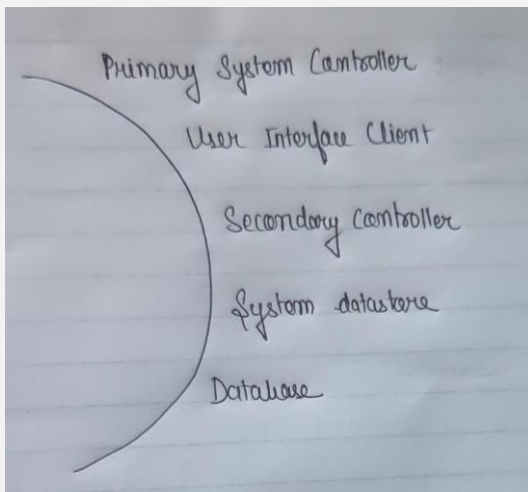 Primary System Controller
User Interface Client
Secondary Controller
System datastore
Database